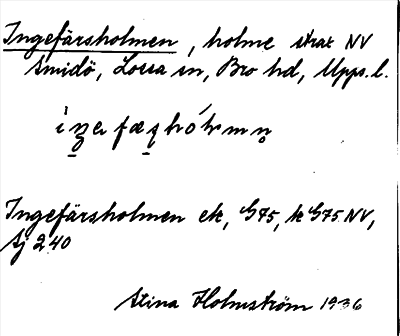 Ingefärsholmen, holme strax NV
Smidö, Lossa sn, Bro hd, Upps. l.
Ingefärsholmen ek, G75, hk G75 NV,
Sj 240
Stina Holmström 1936